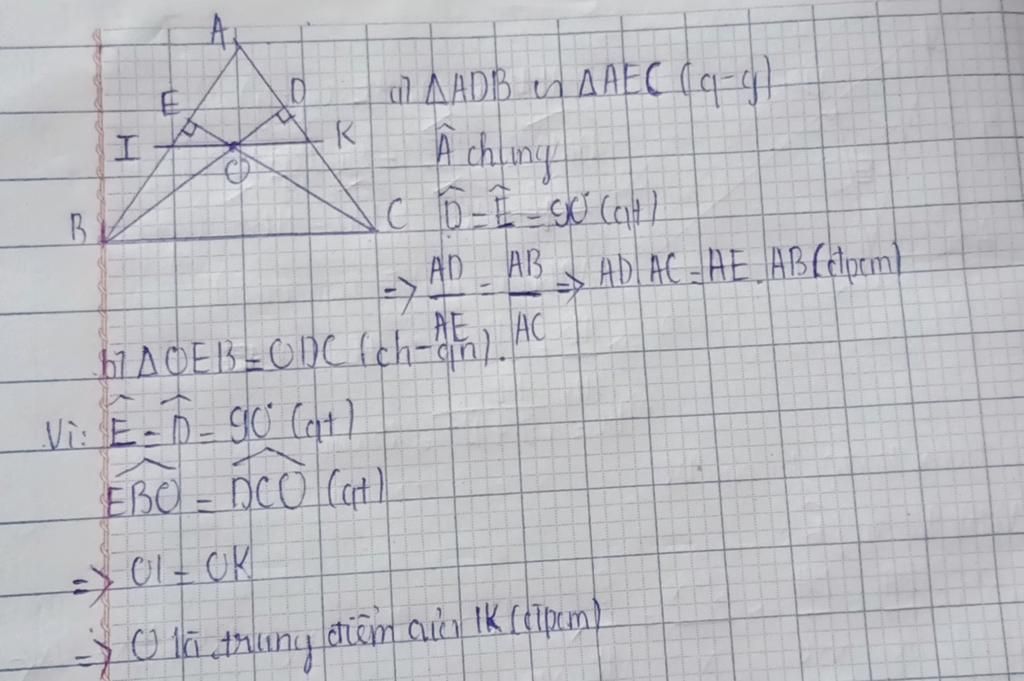 A
E
D
I
K
O
B
C
a) ΔADB ∽ ΔAEC (g-g)
Â chung
D̂ = Ê = 90° (gt)
=> AD/AE = AB/AC => AD.AC = AE.AB (đpcm)
b) ΔOEB = ODC (ch-gn).
Vì: Ê = D̂ = 90° (gt)
EBO = DCO (gt)
=> OI = OK
=> O là trung điểm của IK (đpcm)